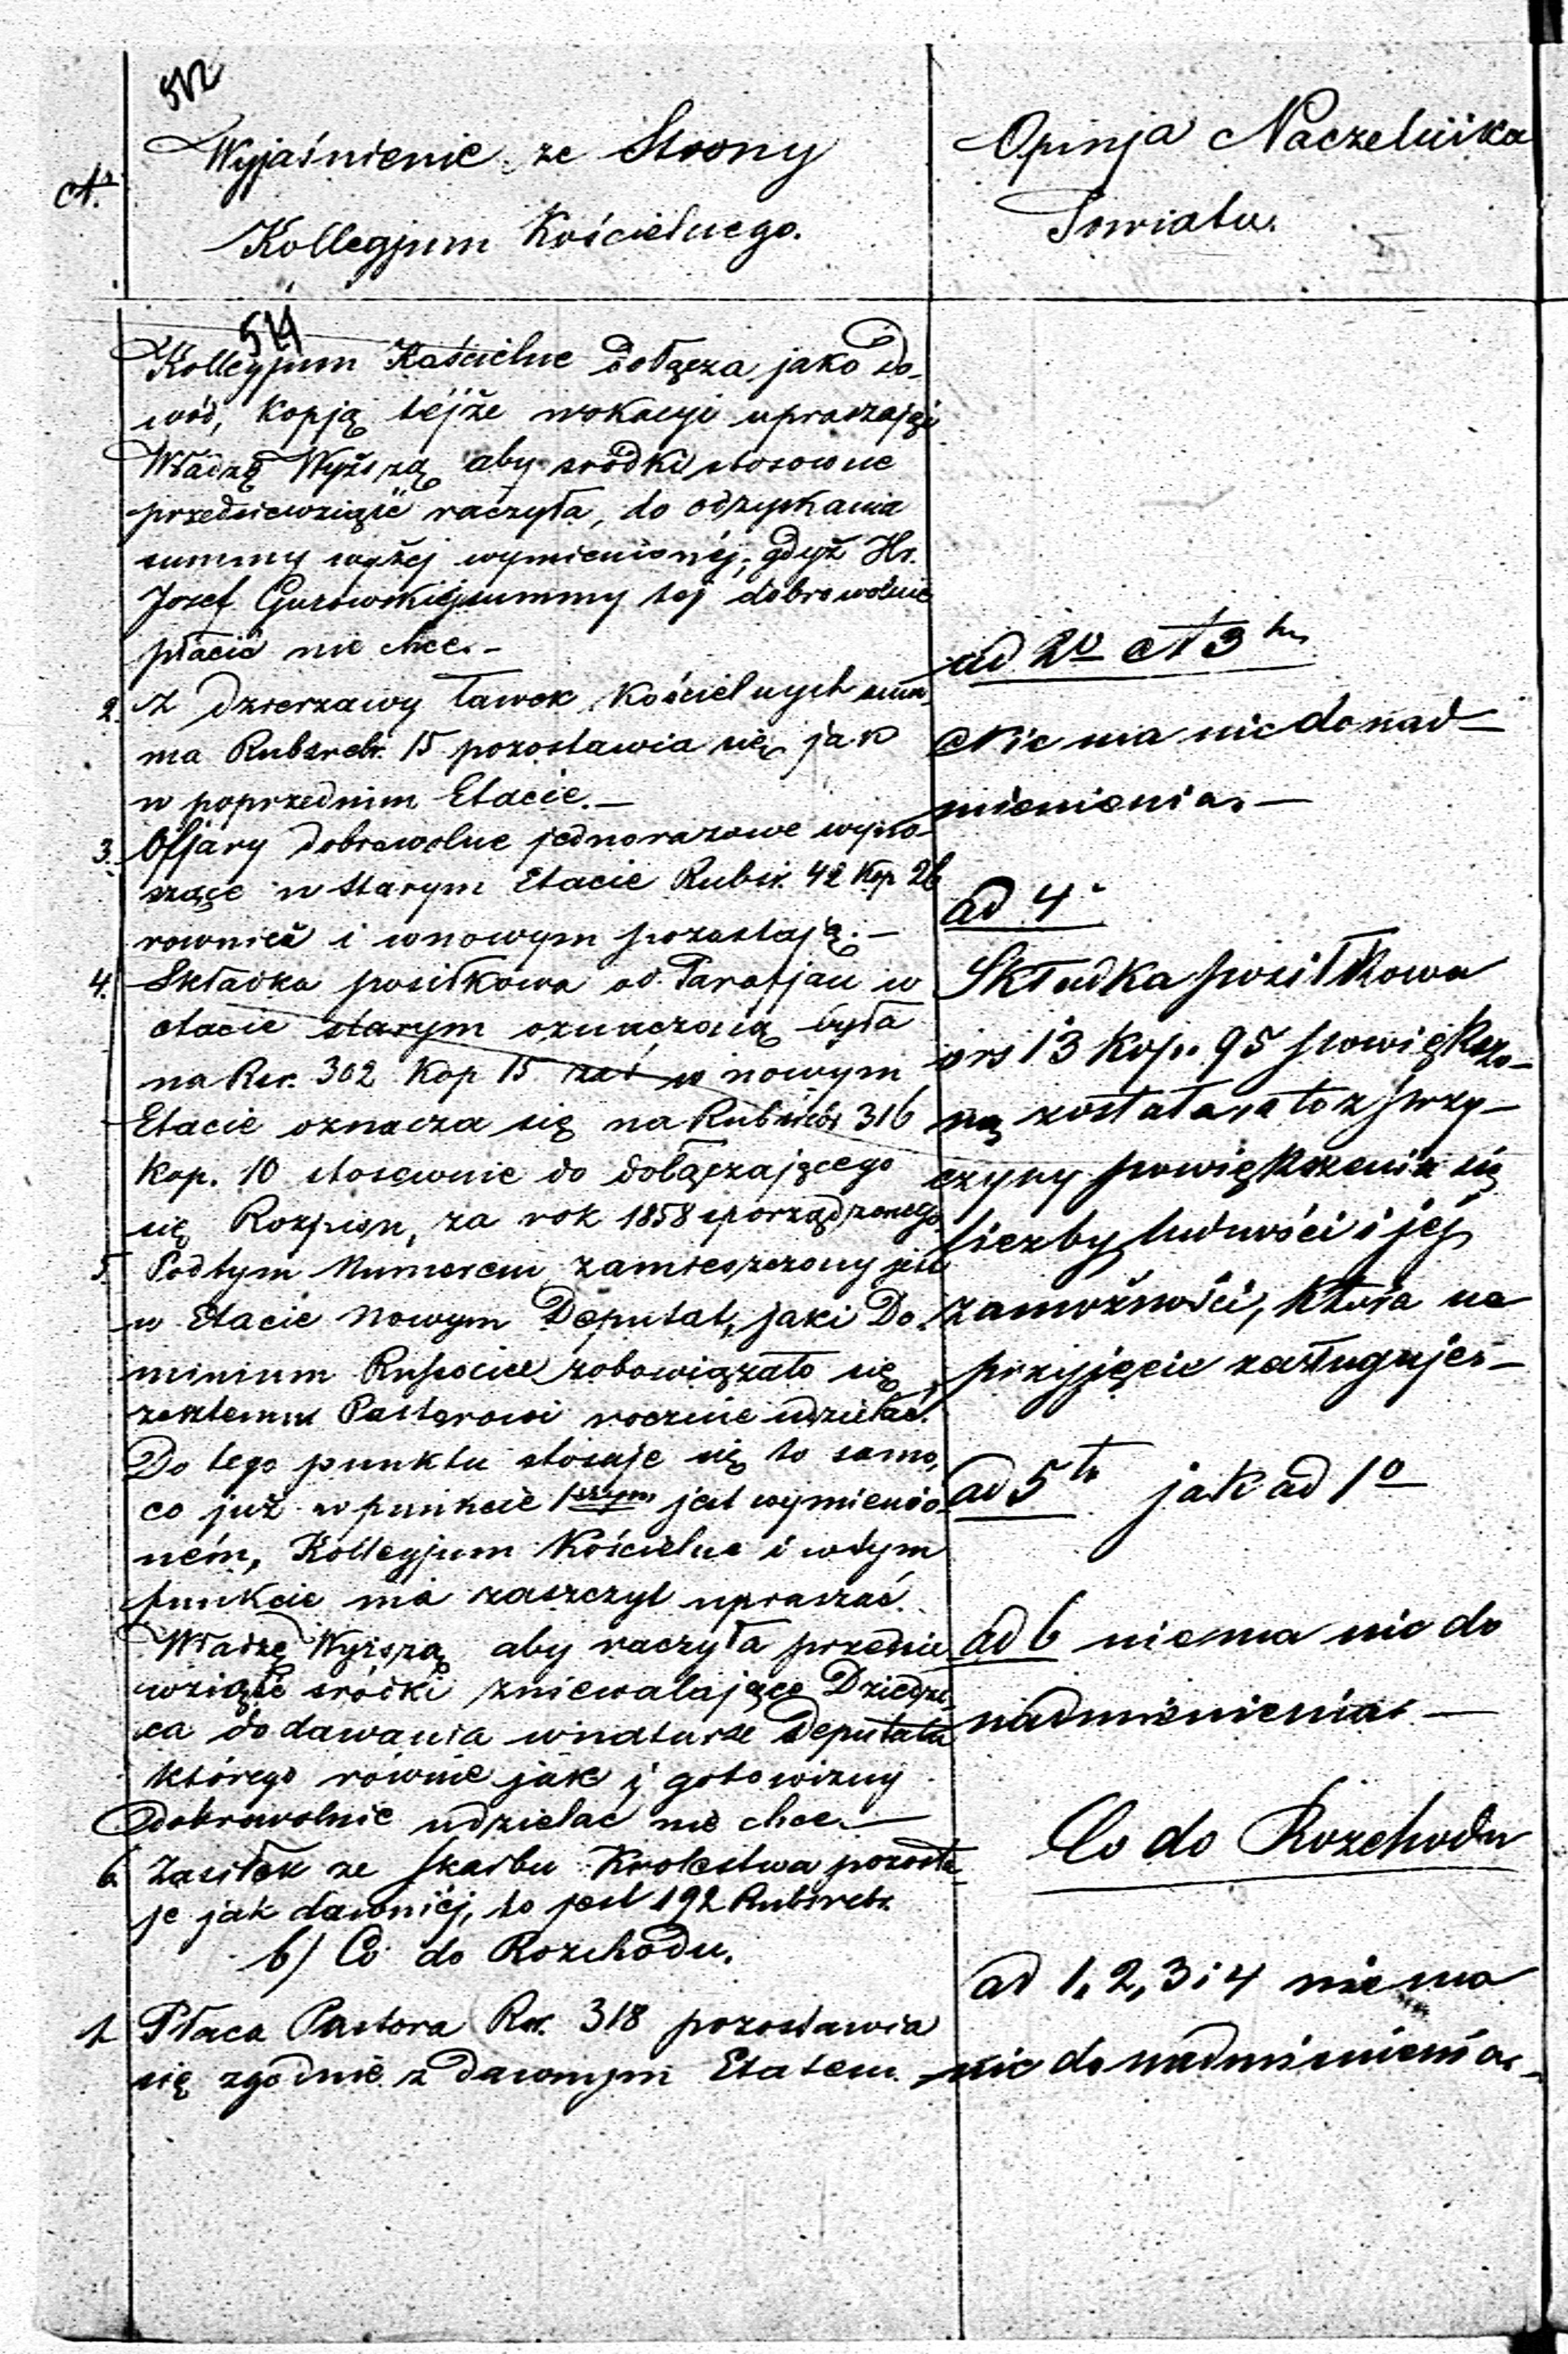 512
№
Wyjaśnienie ze Strony
Kollegjum Kościelnego.
Opinja Naczelnika
Powiatu.
514
Kollegjum Kościelne dołącza jako do-
wód, kopją tejże wokacyi upraszając
Władzę Wyższą aby srodki stosowne
przedsiewziąść raczyła, do odzyskania
summy wyżej wymienionéj, gdyż Hr.
Jozef Gurowski summy tej dobrowolnie
płacić nie chce.-
2. Z dzierzawy ławek Kościelnych sum-
ma Rubsrebr. 15 pozostawia się jak
w poprzednim Etacie.-
3. Ofjary dobrowolne jednorazowe wyno-
szące w starym Etacie Rubsr. 42 Kop 26
rownież i wnowym pozostają.-
4. Składka posiłkowa od Parafjan w
etacie starym oznaczoną była
na Rsr. 302 Kop 15 zaś w nowym
Etacie oznacza się na Rubsrebr 316
Kop. 10 stosownie do dołączającego
się Rozpisu, za rok 1858 sporządzonego
5. Podtym Numerem zamieszczony jest
w Etacie Nowym Deputat, jaki Do-
minium Russocice zobowiązało się
zesztemu Pastorowi rocznie udzielać.
Do tego punktu stosuje się to samo,
co już w punkcie 1szym jest wymienio-
ném, Kollegjum Kościelne i wtym
punkcie ma zaszczyt upraszać
Władzę Wyższą aby raczyła przedsie
wziąść srodki zniewalające Dziedzi-
ca do dawania wnaturze Deputatu
którego równie jak i gotowizny
dobrowolnie udzielać nie chce.-
6. Zasiłek ze skarbu Krolestwa pozosta-
je jak dawniéj, to jest 192 Rubsrebr.
b) Co do Rozchodu.
1. Płaca Pastora Rsr. 318 pozostawia
się zgodnie z dawnym Etatem.
ad 2o et 3
Nie ma nic do nad-
mienienia.-
ad 4
Składka posiłkowa
o rs 13 kop. 95 powiększo-
ną została, a to z przy-
czyny powiększenia się
liczby ludności i jéj
zamożności, która na
przyjęcie zasługuje.-
ad 5to jak ad 1o
ad 6 niema nic do
nadmienienia.-
Co do Rozchodu
ad 1, 2, 3 i 4 nie ma
nic do nadmienienia.-